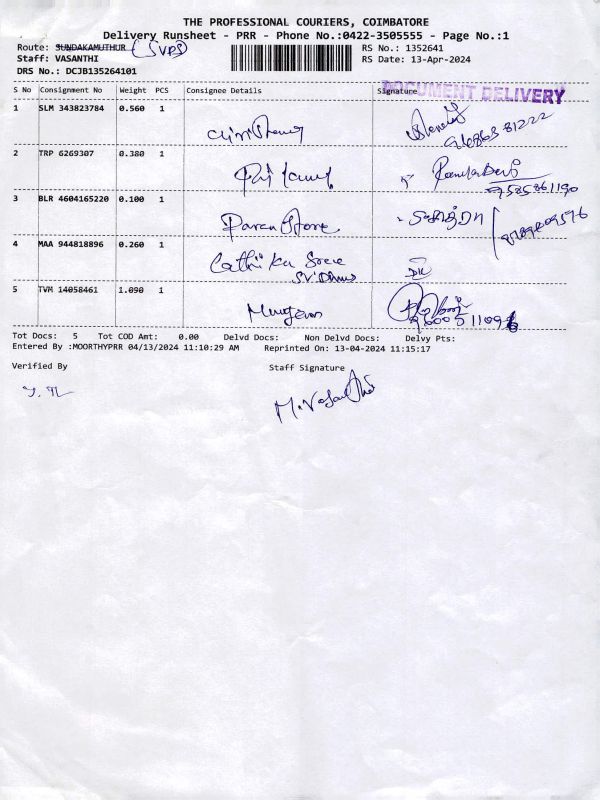 THE PROFESSIONAL COURIERS, COIMBATORE
Delivery Runsheet - PRR - Phone No.:0422-3505555 - Page No.:1
Route: SUNDAKAMUTHUR (SVPS)
RS No.: 1352641
Staff: VASANTHI
RS Date: 13-Apr-2024
DRS No.: DCJB135264101
DOCUMENT DELIVERY
S No Consignment No Weight PCS Consignee Details Signature
1 SLM 343823784 0.560 1
2 TRP 6269307 0.380 1
9585861190
3 BLR 4604165220 0.100 1 Store
4 MAA 944818896 0.260 1 Sree
5 TVM 14058461 1.090 1 Murugesan
Tot Docs: 5 Tot COD Amt: 0.00 Delvd Docs: Non Delvd Docs: Delvy Pts:
Entered By :MOORTHYPRR 04/13/2024 11:10:29 AM Reprinted On: 13-04-2024 11:15:17
Verified By Staff Signature
M.Vasanthi